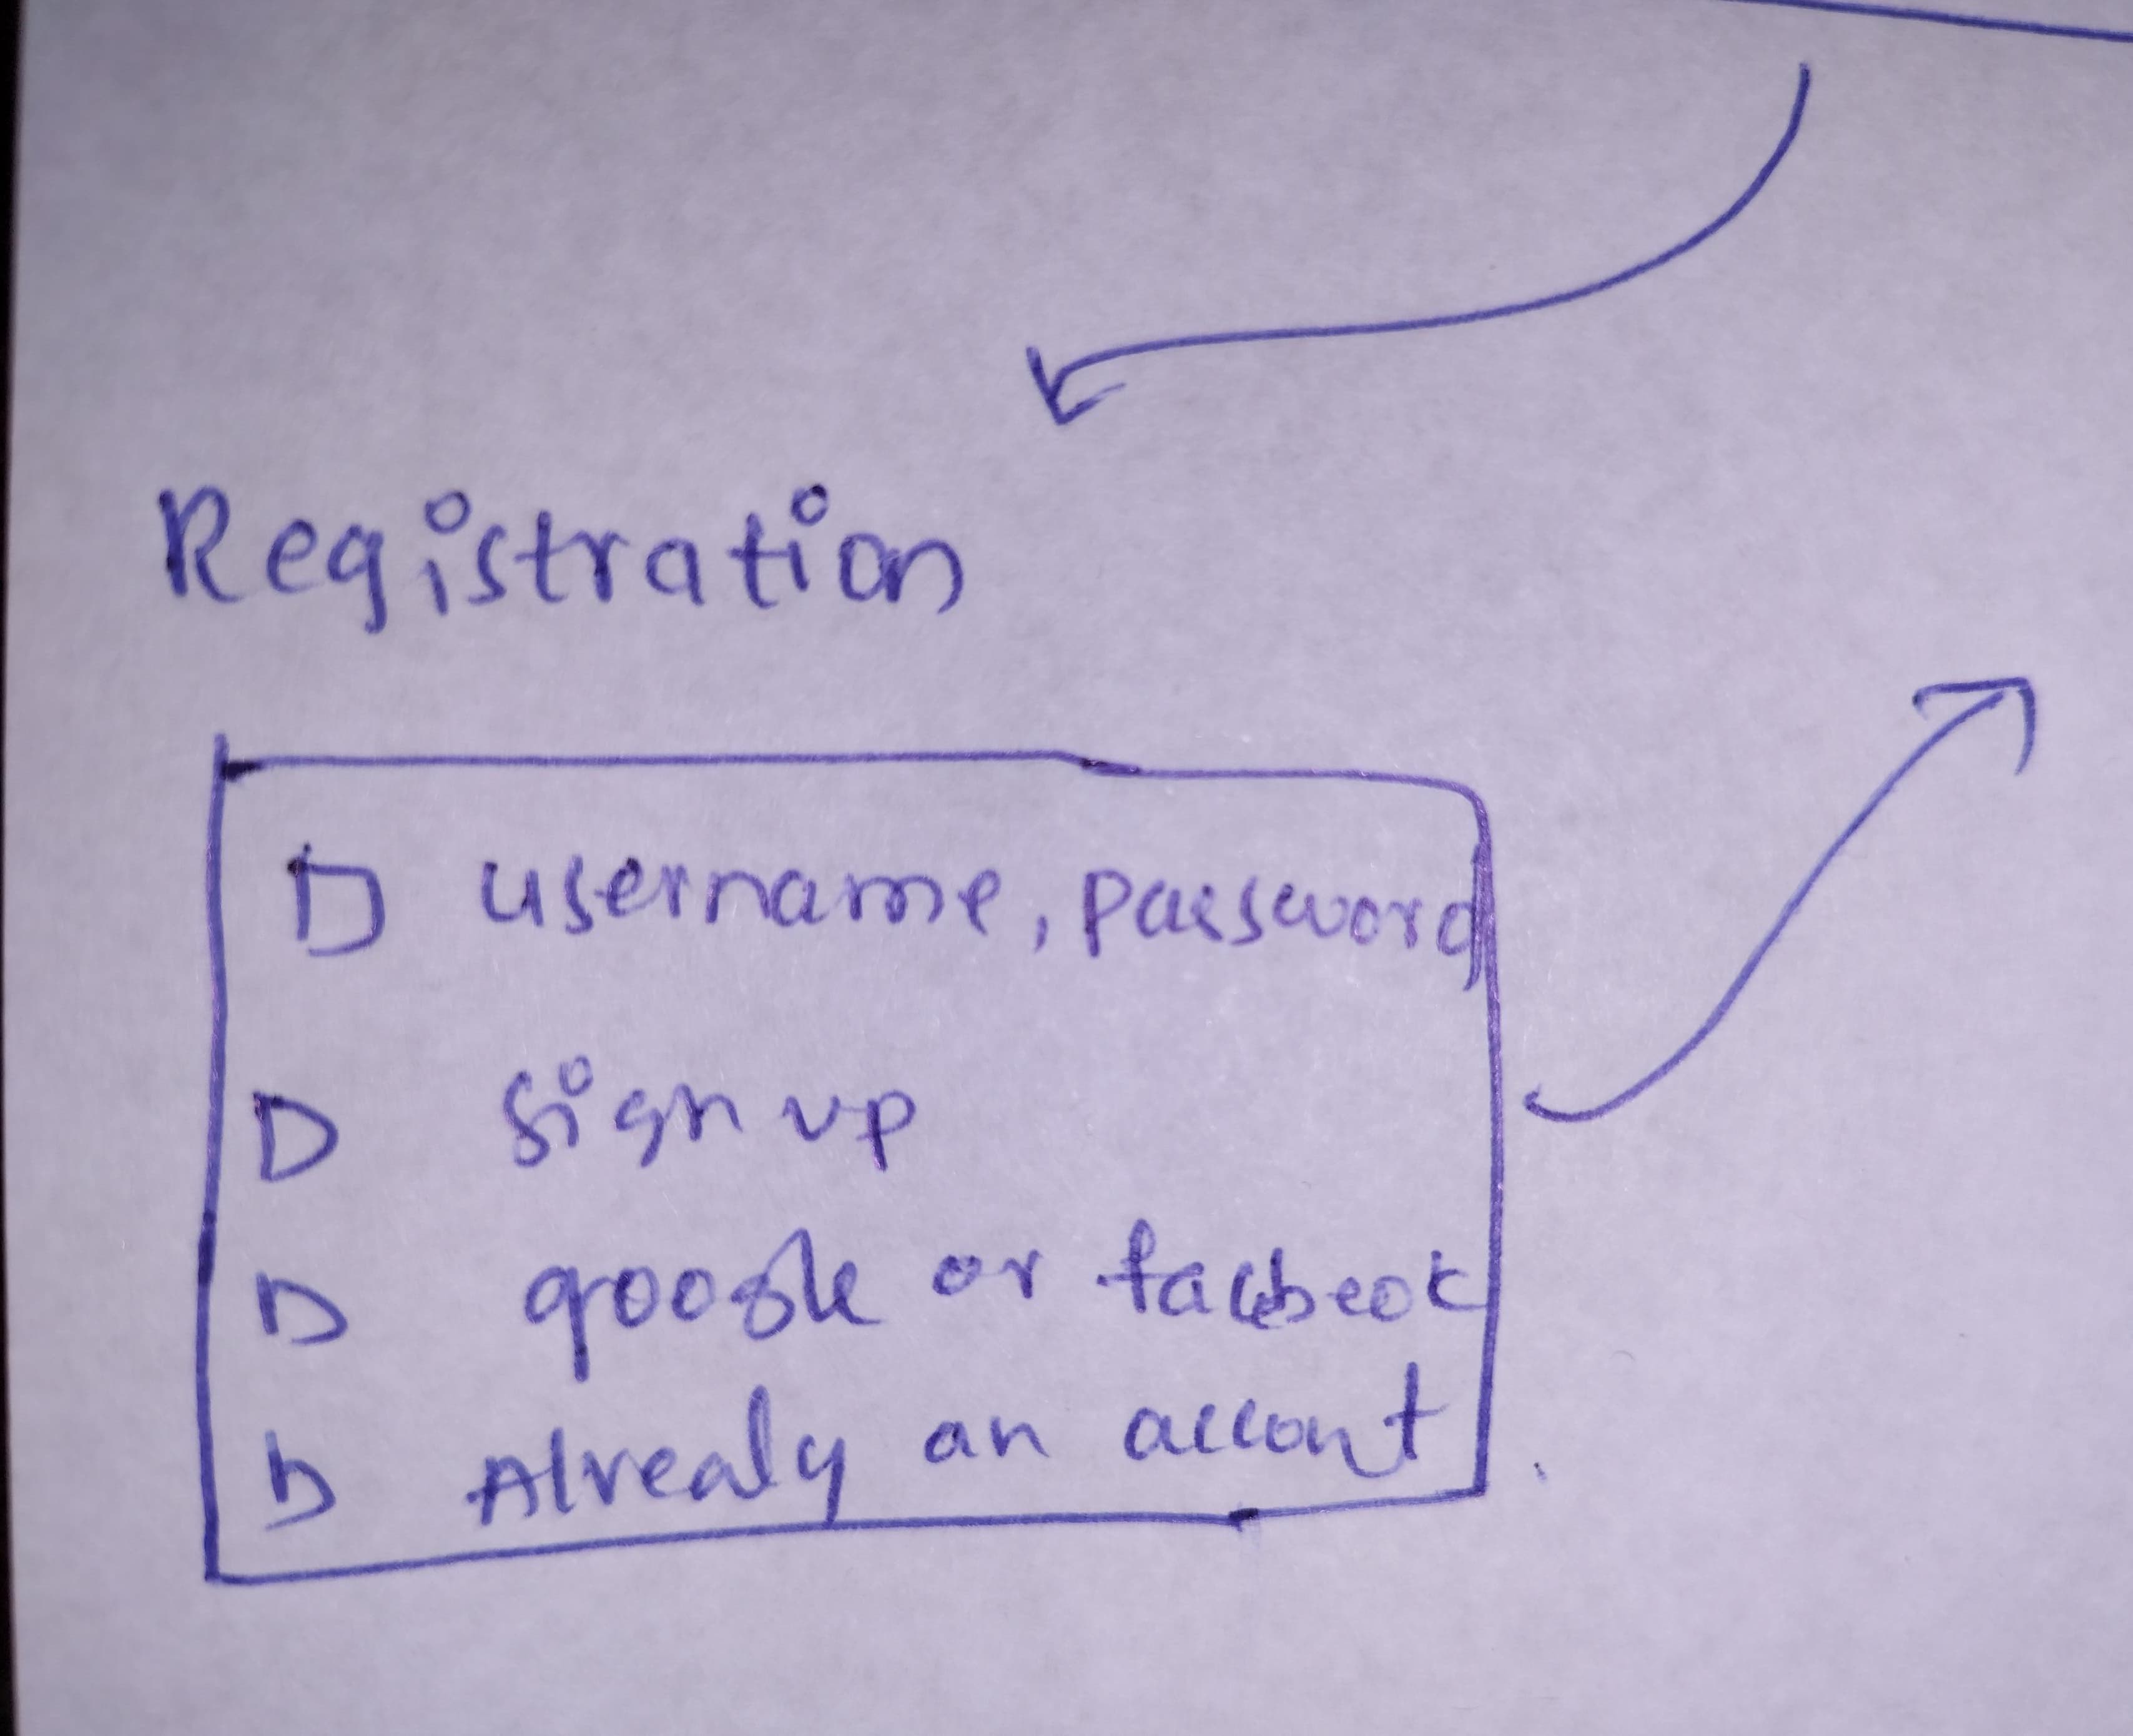 Registration
D username, password
D sign up
D google or facebook
D Alrealy an accont